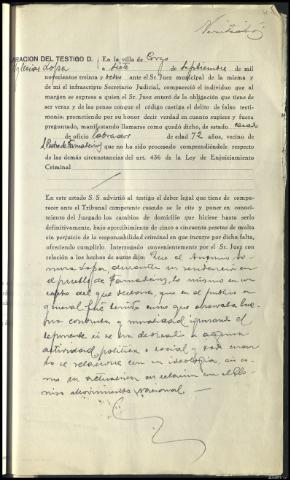 RACION DEL TESTIGO D. En la villa de Corzo
Iglesias Lopez a siete de Septiembre de mil
novecientos treinta y ocho ante el Sr. Juez municipal de la misma y
de mi el infrascripto Secretario Judicial, compareció el individuo que al
margen se expresa a quien el Sr. Juez enteró de la obligación que tiene de
ser veraz y de las penas conque el código castiga el delito de falso testi-
monio; prometiendo por su honor decir verdad en cuanto supiere y fuera
preguntado, manifestando llamarse como quedó dicho, de estado casado
de oficio labrador de edad 72 años, vecino de
que no ha sido procesado comprendiéndole respecto
de las demás circunstancias del art. 436 de la Ley de Enjuiciamiento
Criminal
En este estado S. S. advirtió al testigo el deber legal que tiene de compa-
recer ante el Tribunal competente cuando se le cite y poner en conoci-
miento del Juzgado los cambios de domicilio que hiciese hasta serlo
definitivamente, bajo apercibimiento de cinco a cincuenta pesetas de multa
sin perjuicio de la responsabilidad criminal en que incurre por dicha falta,
ofreciendo cumplirlo. Interrogado convenientemente por el Sr. Juez con
relación a los hechos de autos dijo: Que el
Lopez, durante su residencia en
el pueblo de lo mismo en con
cepto del que declara que en el publico en
general fué tenido como que observaba bue
na conducta y moralidad ignorando el
deponente si se ha dedicado a alguna
actividad politica o social y todo cuan
to se relacione con su ideologia, asi co
mo su actuacion en relacion con el Glo
rioso Movimiento Nacional.